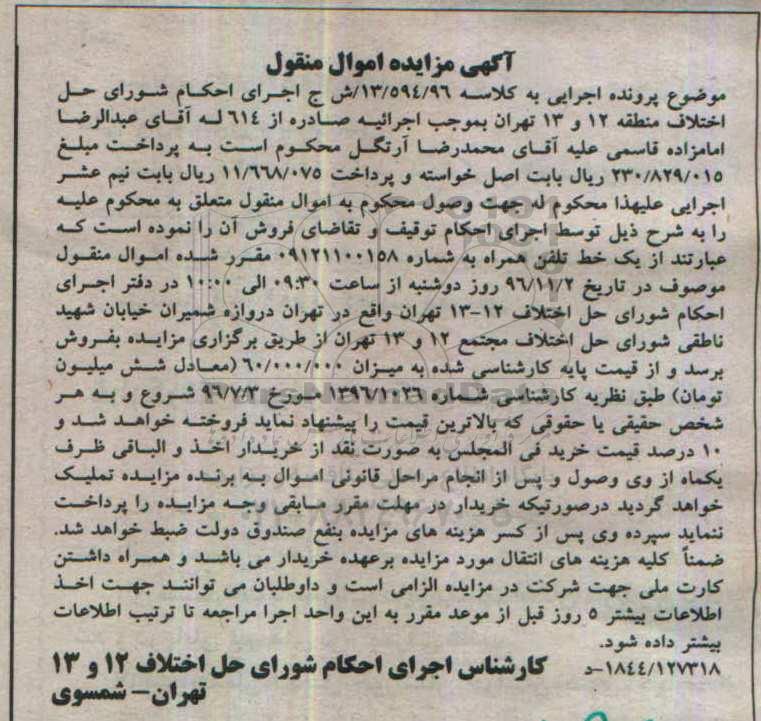 آگهی مزایده اموال منقول
موضوع پرونده اجرایی به کلاسه ۱۳/۵۹٤/۹۶/ش ج اجرای احکام شورای حل
اختلاف منطقه ۱۲ و ۱۳ تهران بموجب اجرائیه صادره از ٦۱٤ له آقای عبدالرضا
امامزاده قاسمی علیه آقای محمدرضا آرتگل محکوم است به پرداخت مبلغ
۲۳۰/۸۲۹/۰۱۵ ریال بابت اصل خواسته و پرداخت ۱۱/٦٦۸/۰۷۵ ریال بابت نیم عشر
اجرایی علیهذا محکوم له جهت وصول محکوم به اموال منقول متعلق به محکوم علیه
را به شرح ذیل توسط اجرای احکام توقیف و تقاضای فروش آن را نموده است که
عبارتند از یک خط تلفن همراه به شماره ۰۹۱۲۱۱۰۰۱۵۸ مقرر شده اموال منقول
موصوف در تاریخ ۹٦/۱۱/۲ روز دوشنبه از ساعت ۰۹:۳۰ الی ۱۰:۰۰ در دفتر اجرای
احکام شورای حل اختلاف ۱۲-۱۳ تهران واقع در تهران دروازه شمیران خیابان شهید
ناطقی شورای حل اختلاف مجتمع ۱۲ و ۱۳ تهران از طریق برگزاری مزایده بفروش
برسد و از قیمت پایه کارشناسی شده به میزان ٦۰/۰۰۰/۰۰۰ (معادل شش میلیون
تومان) طبق نظریه کارشناسی شماره ۱۳۹٦/۱۰۲٦ مورخ ۹٦/۷/۳ شروع و به هر
شخص حقیقی یا حقوقی که بالاترین قیمت را پیشنهاد نماید فروخته خواهد شد و
۱۰ درصد قیمت خرید فی المجلس به صورت نقد از خریدار اخذ و الباقی ظرف
یکماه از وی وصول و پس از انجام مراحل قانونی اموال به برنده مزایده تملیک
خواهد گردید درصورتیکه خریدار در مهلت مقرر مابقی وجه مزایده را پرداخت
ننماید سپرده وی پس از کسر هزینه های مزایده بنفع صندوق دولت ضبط خواهد شد.
ضمناً کلیه هزینه های انتقال مورد مزایده برعهده خریدار می باشد و همراه داشتن
کارت ملی جهت شرکت در مزایده الزامی است و داوطلبان می توانند جهت اخذ
اطلاعات بیشتر ۵ روز قبل از موعد مقرر به این واحد اجرا مراجعه تا ترتیب اطلاعات
بیشتر داده شود.
۱۸٤٤/۱۲۷۳۱۸-د کارشناس اجرای احکام شورای حل اختلاف ۱۲ و ۱۳
تهران- شمسوی